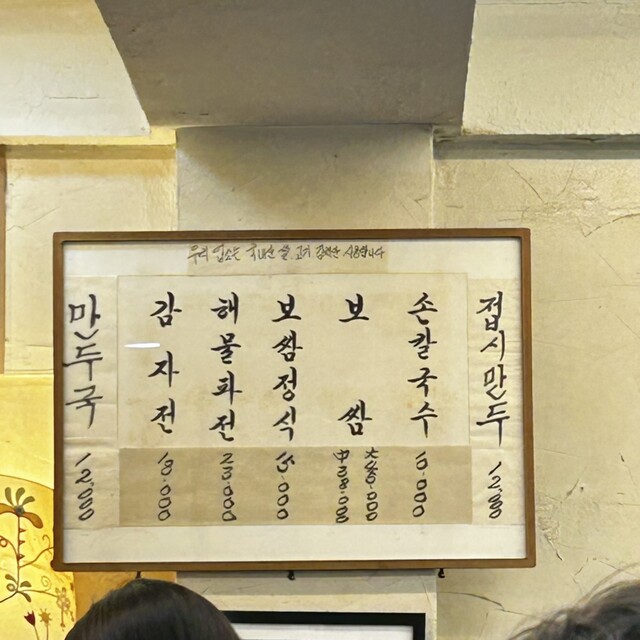 우리 업소는 국내산 쌀, 고기 김치만 사용합니다
접시만두
12.000
손칼국수
보쌈
大
中 38.000
보쌈정식
해물파전
23.000
감자전
만두국
12.000